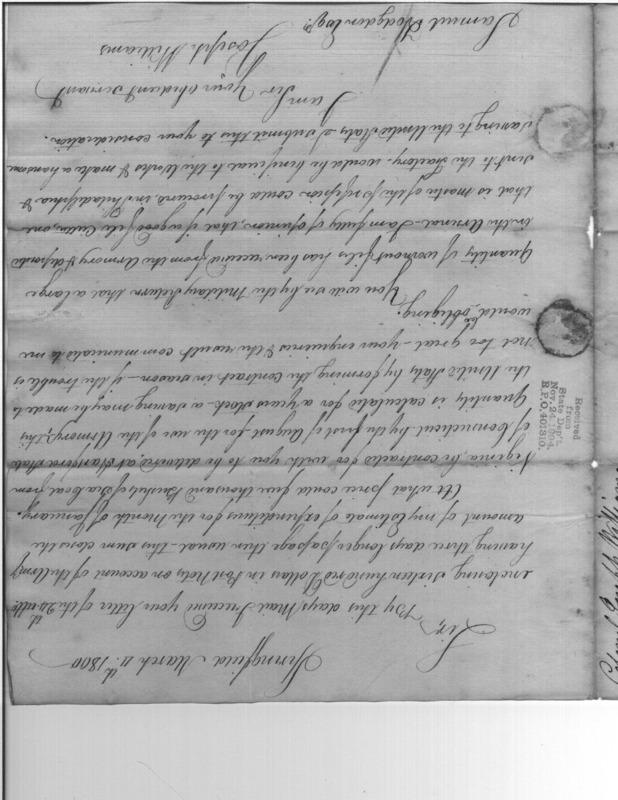 Springfield March 11th 1800
Sir,
By this days Mail I received your letter of the 28th Ulto.
enclosing sixteen hundred Dollars in Post Notes on account of the Army
having three days longer passage then usual - this sum closes the
amount of my Estimate of expenditures for the Month of January.
At what price could five thousand Bushels of Sea Coal from
Virginia be contracted for with you to be delivered at Hartford State
of Connecticut by the first of August for the use of the Armory, this
Quantity is calculated for a years stock - a saving may be made to
the United States by forming the Contract in season - if the trouble is
not too great - your enquiries & the result communicated to me
would be obliging.
You will see by the Military Return that a large
Quantity of wornout files has been received from the Armory & deposited
in the Arsenal - I am fully of opinion, that if a good file Cutter, one
that is master of the profession could be procured, in Philadelphia &
sent to the Factory - would be beneficial to the Works & make a handsome
saving to the United States - I submit this to your consideration.
I am
Sir
Your obedient servant
Joseph Williams
Samuel Hodgdon Esqr.
Received
from
State Dep't.
Nov. 24, 1904.
R.P.O. 401310.
Colonel Joseph Williams